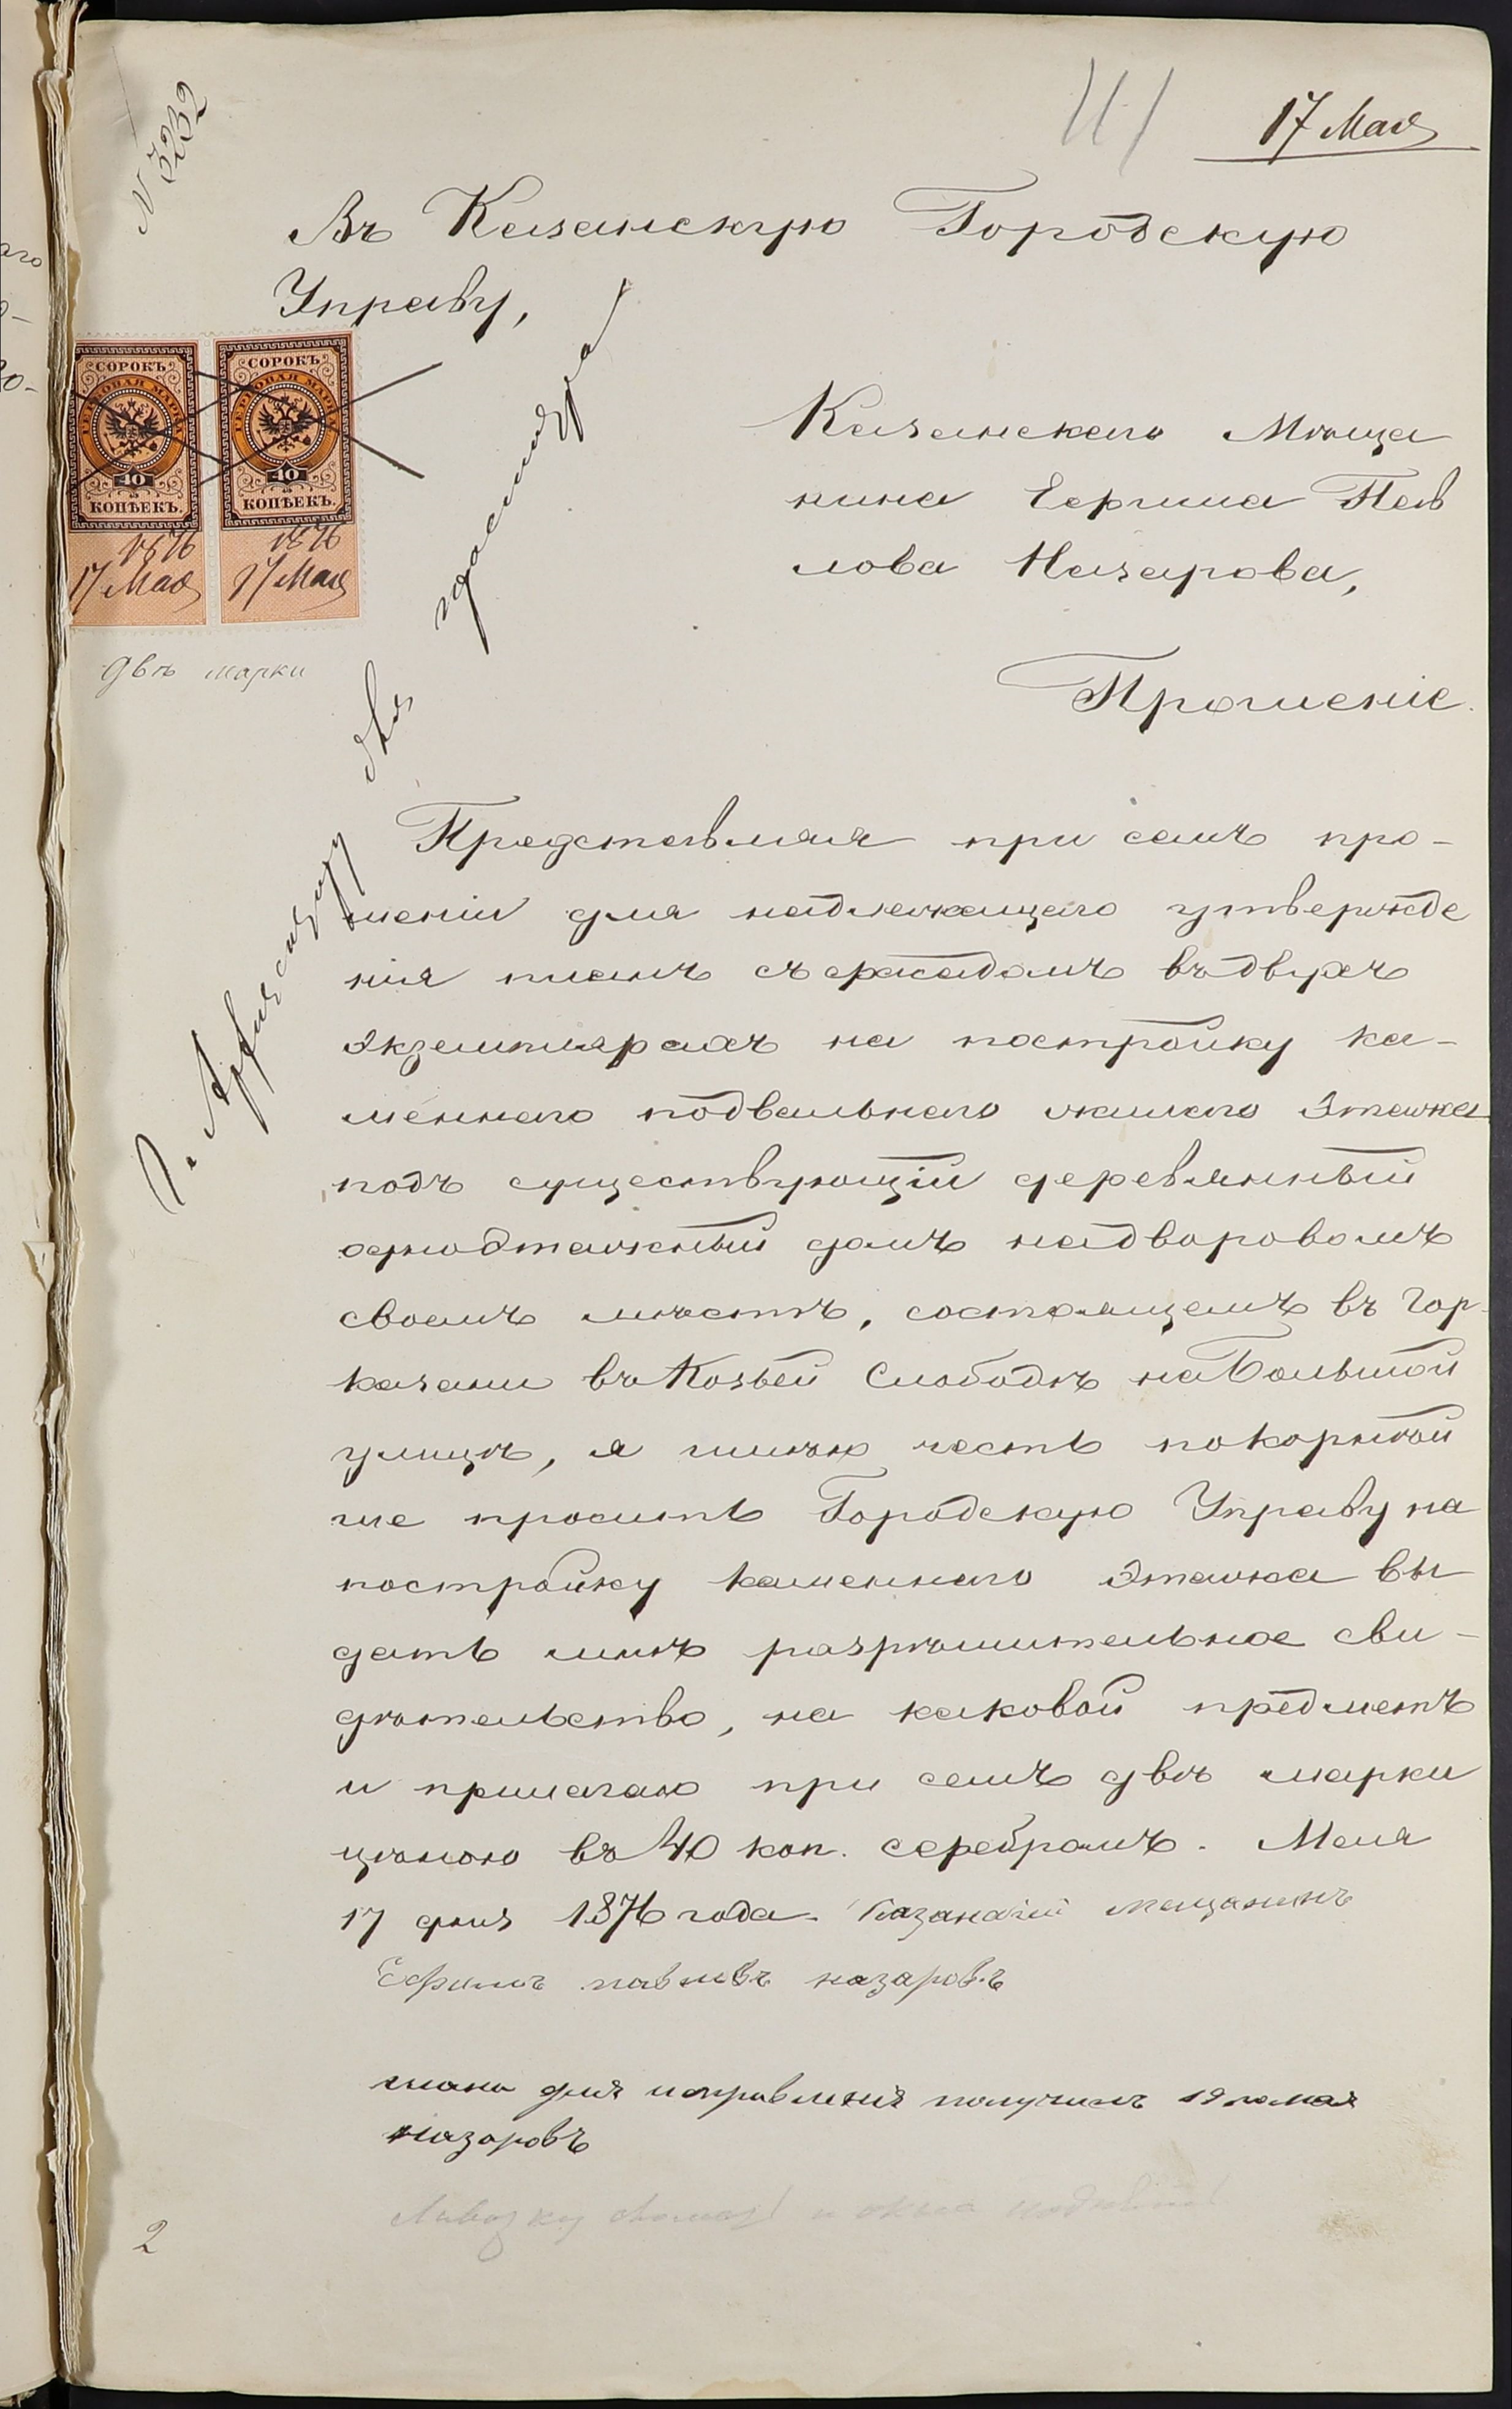 N 3232
17 Мая
Въ Казанскую Городскую
Управу,
СОРОКЪ
ГЕРБОВАЯ МАРКА
40
КОПѢЕКЪ.
1876
17 Мая
СОРОКЪ
ГЕРБОВАЯ МАРКА
40
КОПѢЕКЪ.
1876
17 Мая
двѣ марки
Казанскаго Мѣща
нина Ефима Пав
лова Назарова,
Прошеніе.
Г. Архитектору для
Представляя при семъ про-
шеніи для надлежащаго утвержде
нія планъ съ фасадомъ въ двухъ
экземплярахъ на постройку ка-
меннаго подвальнаго жилаго этажа
подъ существующій деревянный
одноэтажный домъ на дворовомъ
своемъ мѣстѣ, состоящемъ въ Гор.
Казани въ Козьей Слободѣ на Большой
улицѣ, я имѣю честь покорнѣй
ше просить Городскую Управу на
постройку каменнаго этажа вы
дать мнѣ разрѣшительное сви-
дѣтельство, на каковой предметъ
и прилагаю при семъ двѣ марки
цѣною въ 40 коп. серебромъ. Мая
17 дня 1876 года. Казанскій мещанинъ
Ефимъ павловъ назаровъ
плана для исправления получилъ 19 го мая
назаровъ
2